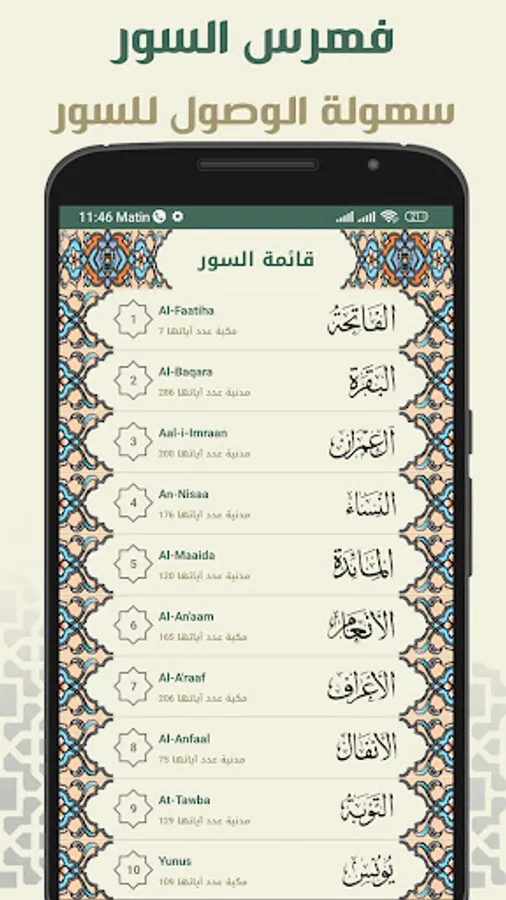 فهرس السور
سهولة الوصول للسور
11:46 Matin 21
قائمة السور
1 Al-Faatiha الفَاتِحَة
مكية عدد آياتها 7
2 Al-Baqara البَقَرَة
مدنية عدد آياتها 286
3 Aal-i-Imraan آل عِمْرَان
مدنية عدد آياتها 200
4 An-Nisaa النِّسَاء
مدنية عدد آياتها 176
5 Al-Maaida المَائِدَة
مدنية عدد آياتها 120
6 Al-An'aam الأَنْعَام
مكية عدد آياتها 165
7 Al-A'raaf الأَعْرَاف
مكية عدد آياتها 206
8 Al-Anfaal الأَنْفَال
مدنية عدد آياتها 75
9 At-Tawba التَّوْبَة
مدنية عدد آياتها 129
10 Yunus يُونُس
مكية عدد آياتها 109